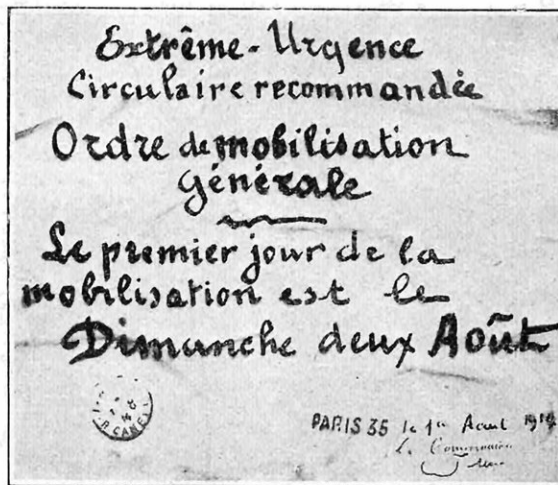 Extrême-Urgence
Circulaire recommandée
Ordre de mobilisation
générale
Le premier jour de la
mobilisation est le
Dimanche deux Août
PARIS 35 le 1er Aout 1914